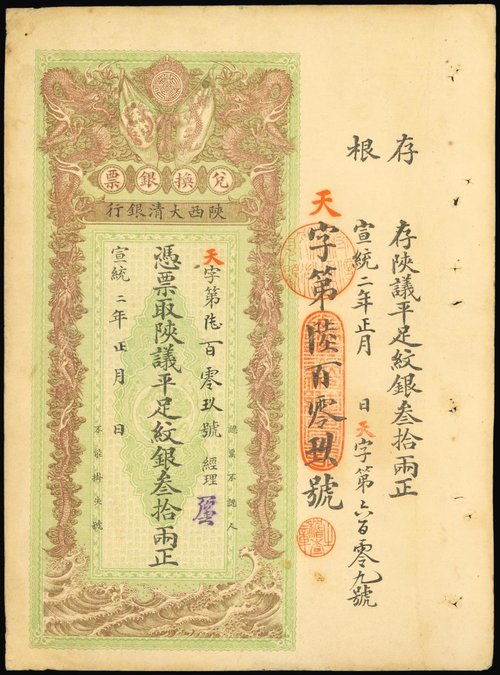 存根
存陝議平足紋銀叁拾兩正
宣統二年正月 日天字第六百零九號
天字第陸百零玖號
兌換銀票
陝西大清銀行
認票不認人
天字第陸百零玖號 經理
憑票取陝議平足紋銀叁拾兩正
宣統二年正月 日
不家掛失號